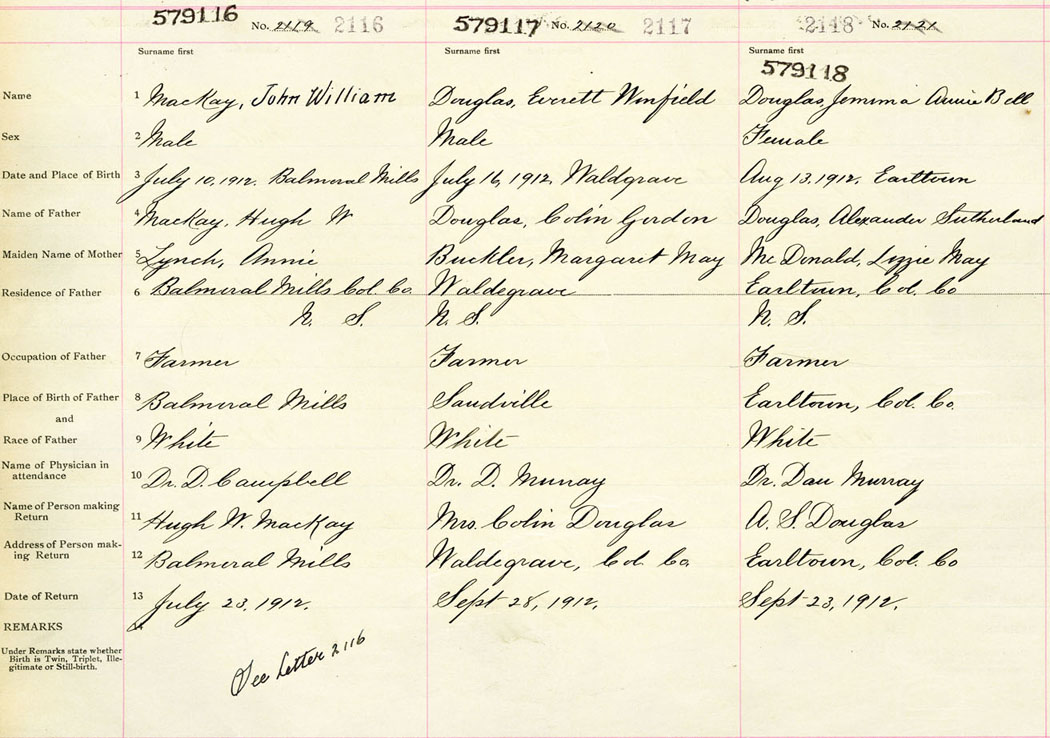 579116 No. 2119 2116 579117 No. 2120 2117 2118 No. 2121
Surname first Surname first Surname first
579118
Name 1 MacKay, John William Douglas, Everett Winfield Douglas, Jemima Annie Bell
Sex 2 Male Male Female
Date and Place of Birth 3 July 10, 1912. Balmoral Mills July 16, 1912, Waldgrave Aug 13, 1912, Earltown
Name of Father 4 MacKay, Hugh W Douglas, Colin Gordon Douglas, Alexander Sutherland
Maiden Name of Mother 5 Lynch, Annie Buckler, Margaret May McDonald, Lizzie May
Residence of Father 6 Balmoral Mills Col. Co. Waldegrave Earltown, Col. Co
N. S. N. S. N. S.
Occupation of Father 7 Farmer Farmer Farmer
Place of Birth of Father 8 Balmoral Mills Sandville Earltown, Col. Co.
and
Race of Father 9 White White White
Name of Physician in
attendance 10 Dr. D. Campbell Dr. D. Murray Dr. Dan Murray
Name of Person making
Return 11 Hugh W. MacKay Mrs. Colin Douglas A. S. Douglas
Address of Person mak-
ing Return 12 Balmoral Mills Waldegrave, Col. Co. Earltown, Col. Co
Date of Return 13 July 23, 1912. Sept 28, 1912. Sept 23, 1912.
REMARKS
Under Remarks state whether
Birth is Twin, Triplet, Ille-
gitimate or Still-birth.
See Letter 2116